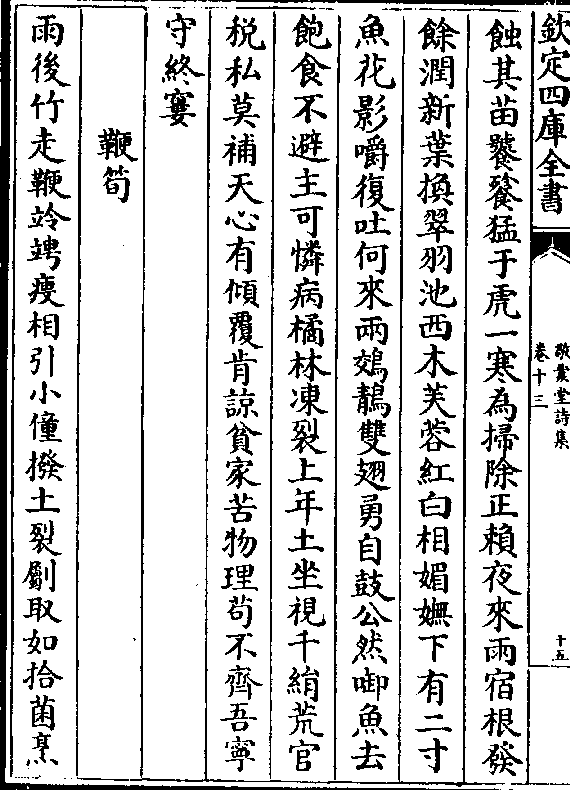 欽定四庫全書
敬業堂詩集
卷十三
十五
蝕其苗饕餮猛于虎一寒為掃除正賴夜來雨宿根發
餘潤新葉換翠羽池西木芙蓉紅白相媚嫵下有二寸
魚花影嚼復吐何來兩鵁鶄雙翅勇自鼓公然啣魚去
飽食不避主可憐病橘林凍裂上年土坐視千絹荒官
税私莫補天心有傾覆肯諒貧家苦物理苟不齊吾寧
守終窶
鞭筍
雨後竹走鞭竛竮瘦相引小僮撥土裂劚取如拾菌烹